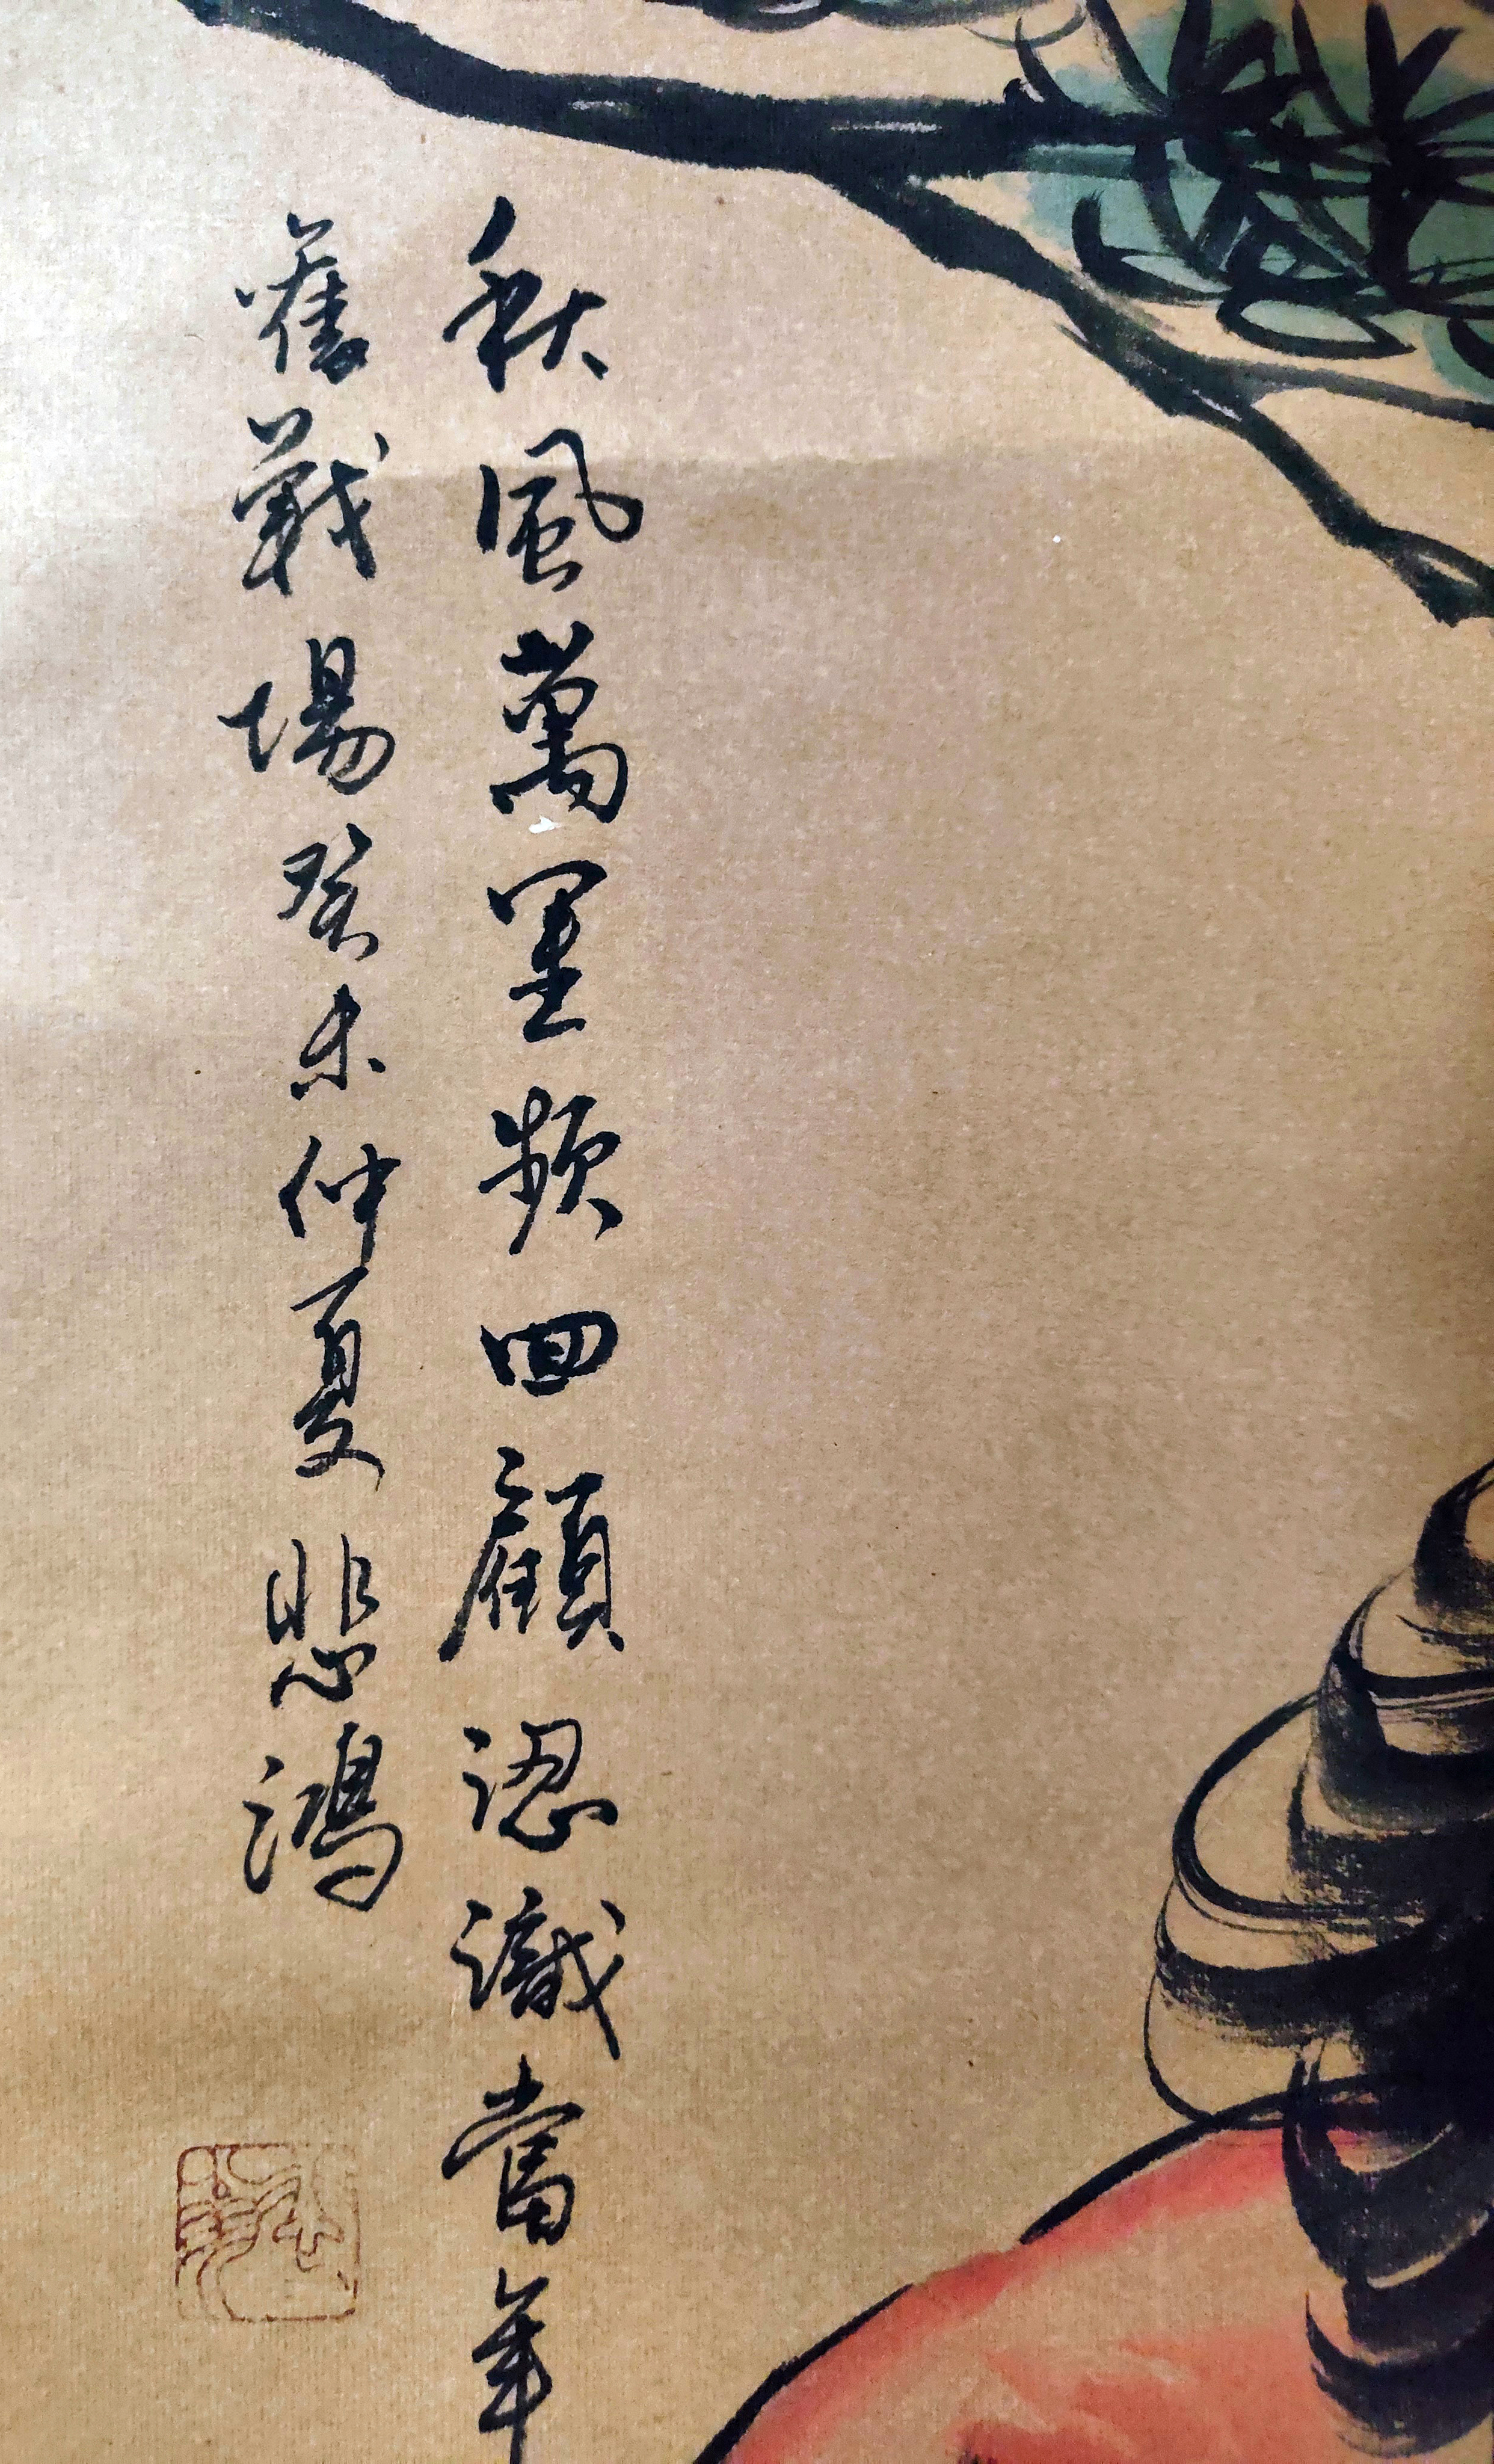 秋風萬里頻回顧認識當年
舊戰場癸未仲夏悲鴻